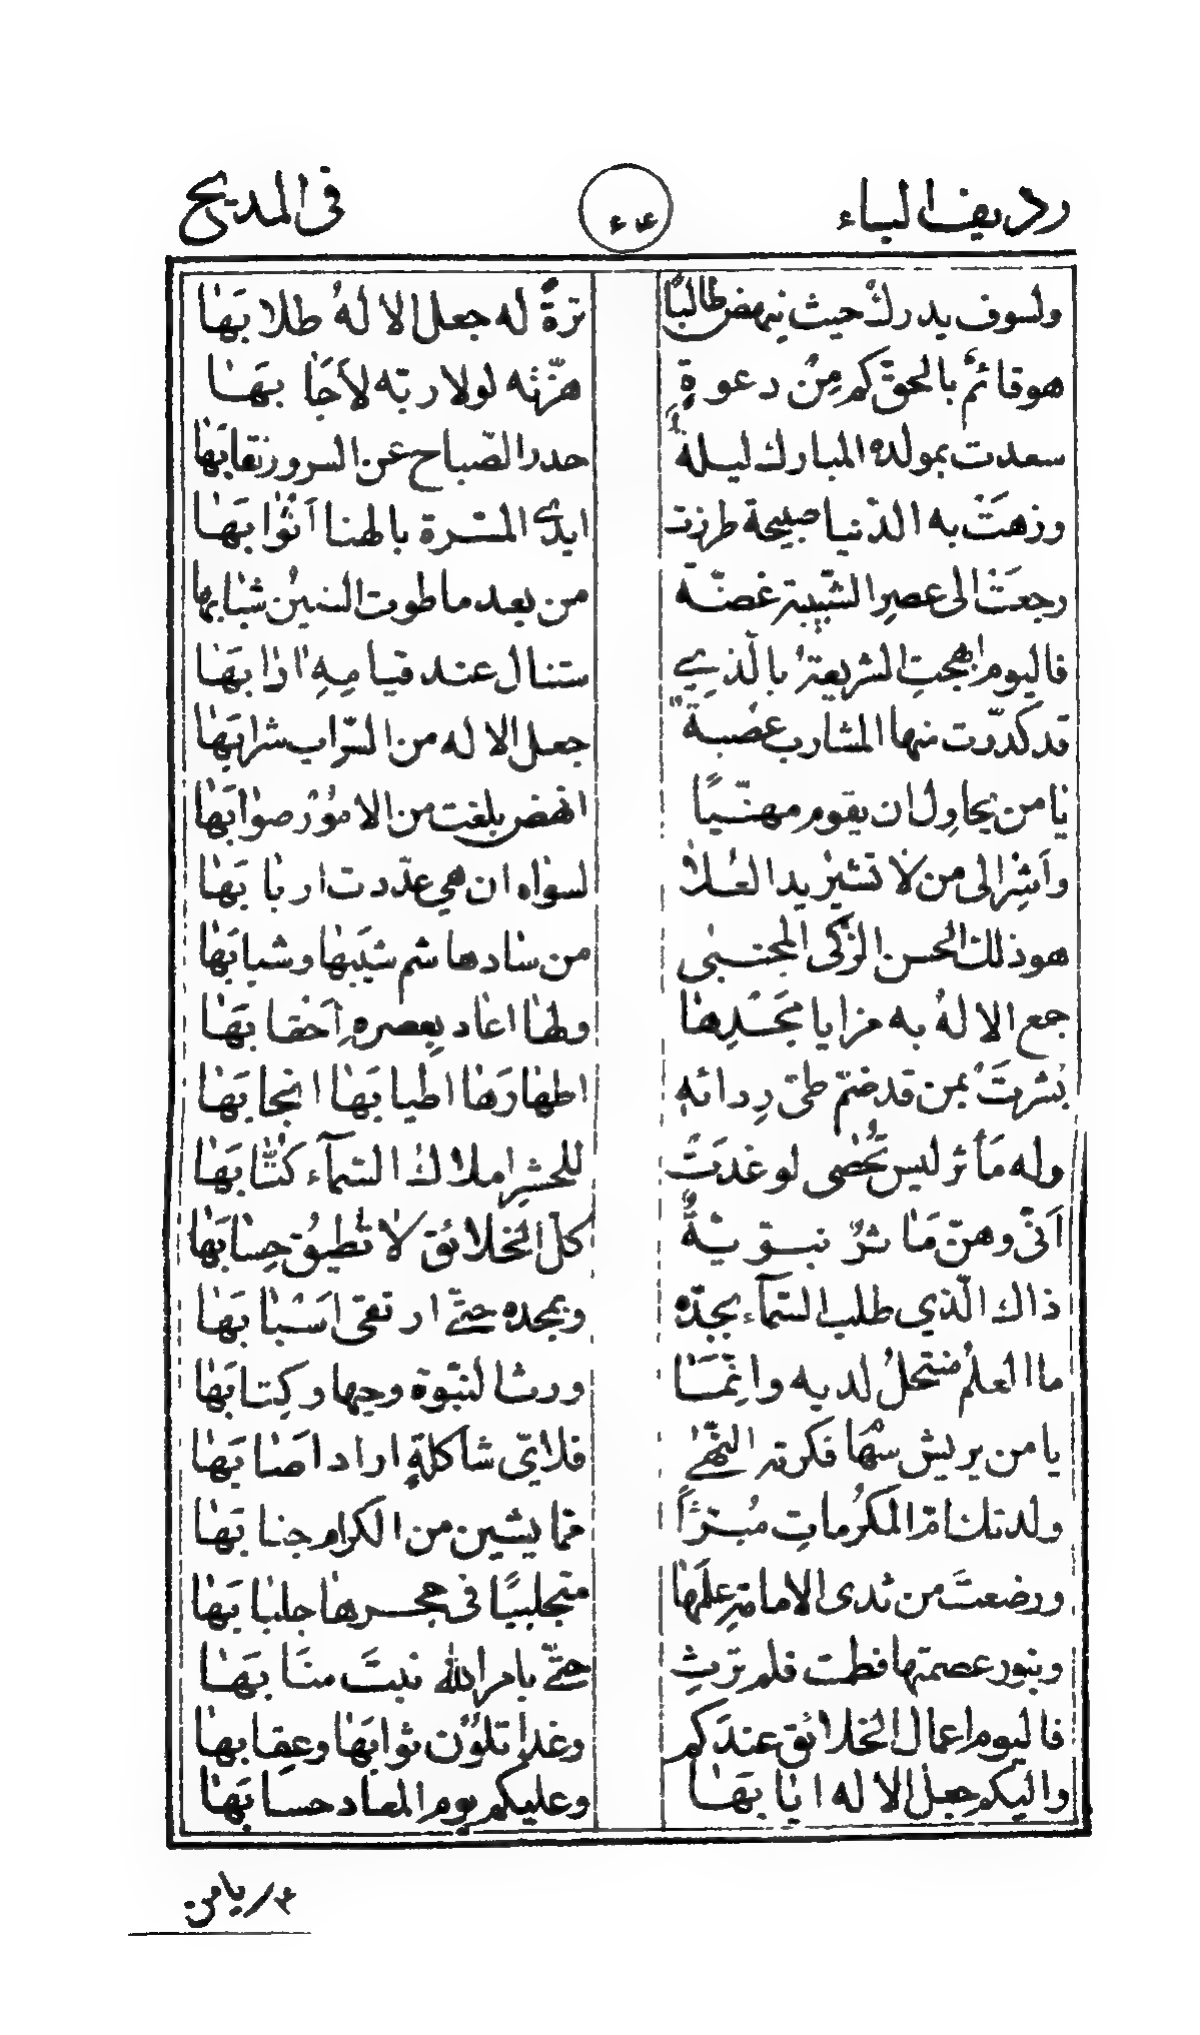 رديف الباء ٤٤ في المديح
ولسوف يدرك حيث ينهض طالبًا ترةً له جعل الالهُ طلابَهٰا
هو قائمٌ بالحقّ كم مِن دعوةٍ هزّته لولا ربّه لأجٰابَهٰا
سعدت بمولده المبارك ليلةٌ حدر الصّباح عن السرور نقابَهٰا
وزهَتْ به الدّنيا صبيحة طرزت ايدي المسّرة بالهنا اَثوٰابَهٰا
رجعَتْ الى عصر الشّبيبة غضّة من بعد ما طوت السنين شبٰابها
فاليوم ابهجتِ الشريعةُ بالّذي ستنال عند قيامِهِ ارٰابَهٰا
قد كدّرت منها المشارب عصْبةٌ جعل الاله من السّراب شرابَهٰا
يٰا من يحاوِل ان يقوم مهنّيًا انهض بلغت من الامُوْر صوٰابَهٰا
واَشِرْ الى من لاٰ تشيرْ يد العُلاٰ لسوٰاه ان هي عدّدت اربٰابَهٰا
هو ذلك الحسن الزّكى المجتبى من سٰاد هاشم شيَبهٰا وشبابَهٰا
جمع الالهُ به مزايا مجَدِهٰا ولهٰا اعٰاد بِعصرهِ اَحقٰابَهٰا
بشرتَ بمن قد ضمّ طىّ رِدائه اطهٰارَهٰا اطيابَهٰا انجابَهٰا
وله مَأثر ليس تُحْصٰى لو غدَتْ للحشرِ املاك السّمآء كتّٰابَهٰا
اَنّى وهنّ مَٰاثرٌ نبــويّــةٌ كلّ الخلائق لاٰ تُطيقُ حِسٰابَهٰا
ذاك الّذي طلب السّمآء بجدّه وبمجده حتّے ارتقى اسَبٰابَهٰا
ما العلمُ منتحلٌ لديه وانّمَٰا ورث النّبوّة وحيها وكِتابَهٰا
يا من يريش سهٰام فكرته النّهٰے فلايّ شاكلةٍ اراد اصٰابَهٰا
ولدتك امّ المكرُماتِ مُبــرّءًا ممّا يشين من الكرام جنابَهٰا
ورضعتَ من ثدى الامامة علَمهٰا متجلببًا في حجرهٰا جلبٰابَهٰا
وبنور عصمتها فطمت فلم ترث حتّے بامر اللّه نبتَ منَابَهٰا
فاليوم اعمال الخلائق عندَكم وغدا تلوُن ثوابَهٰا وعِقابهٰا
واليكم جعل الاله ايٰابَهٰا وعليكم يوم المعٰاد حسٰابَهٰا
يا من